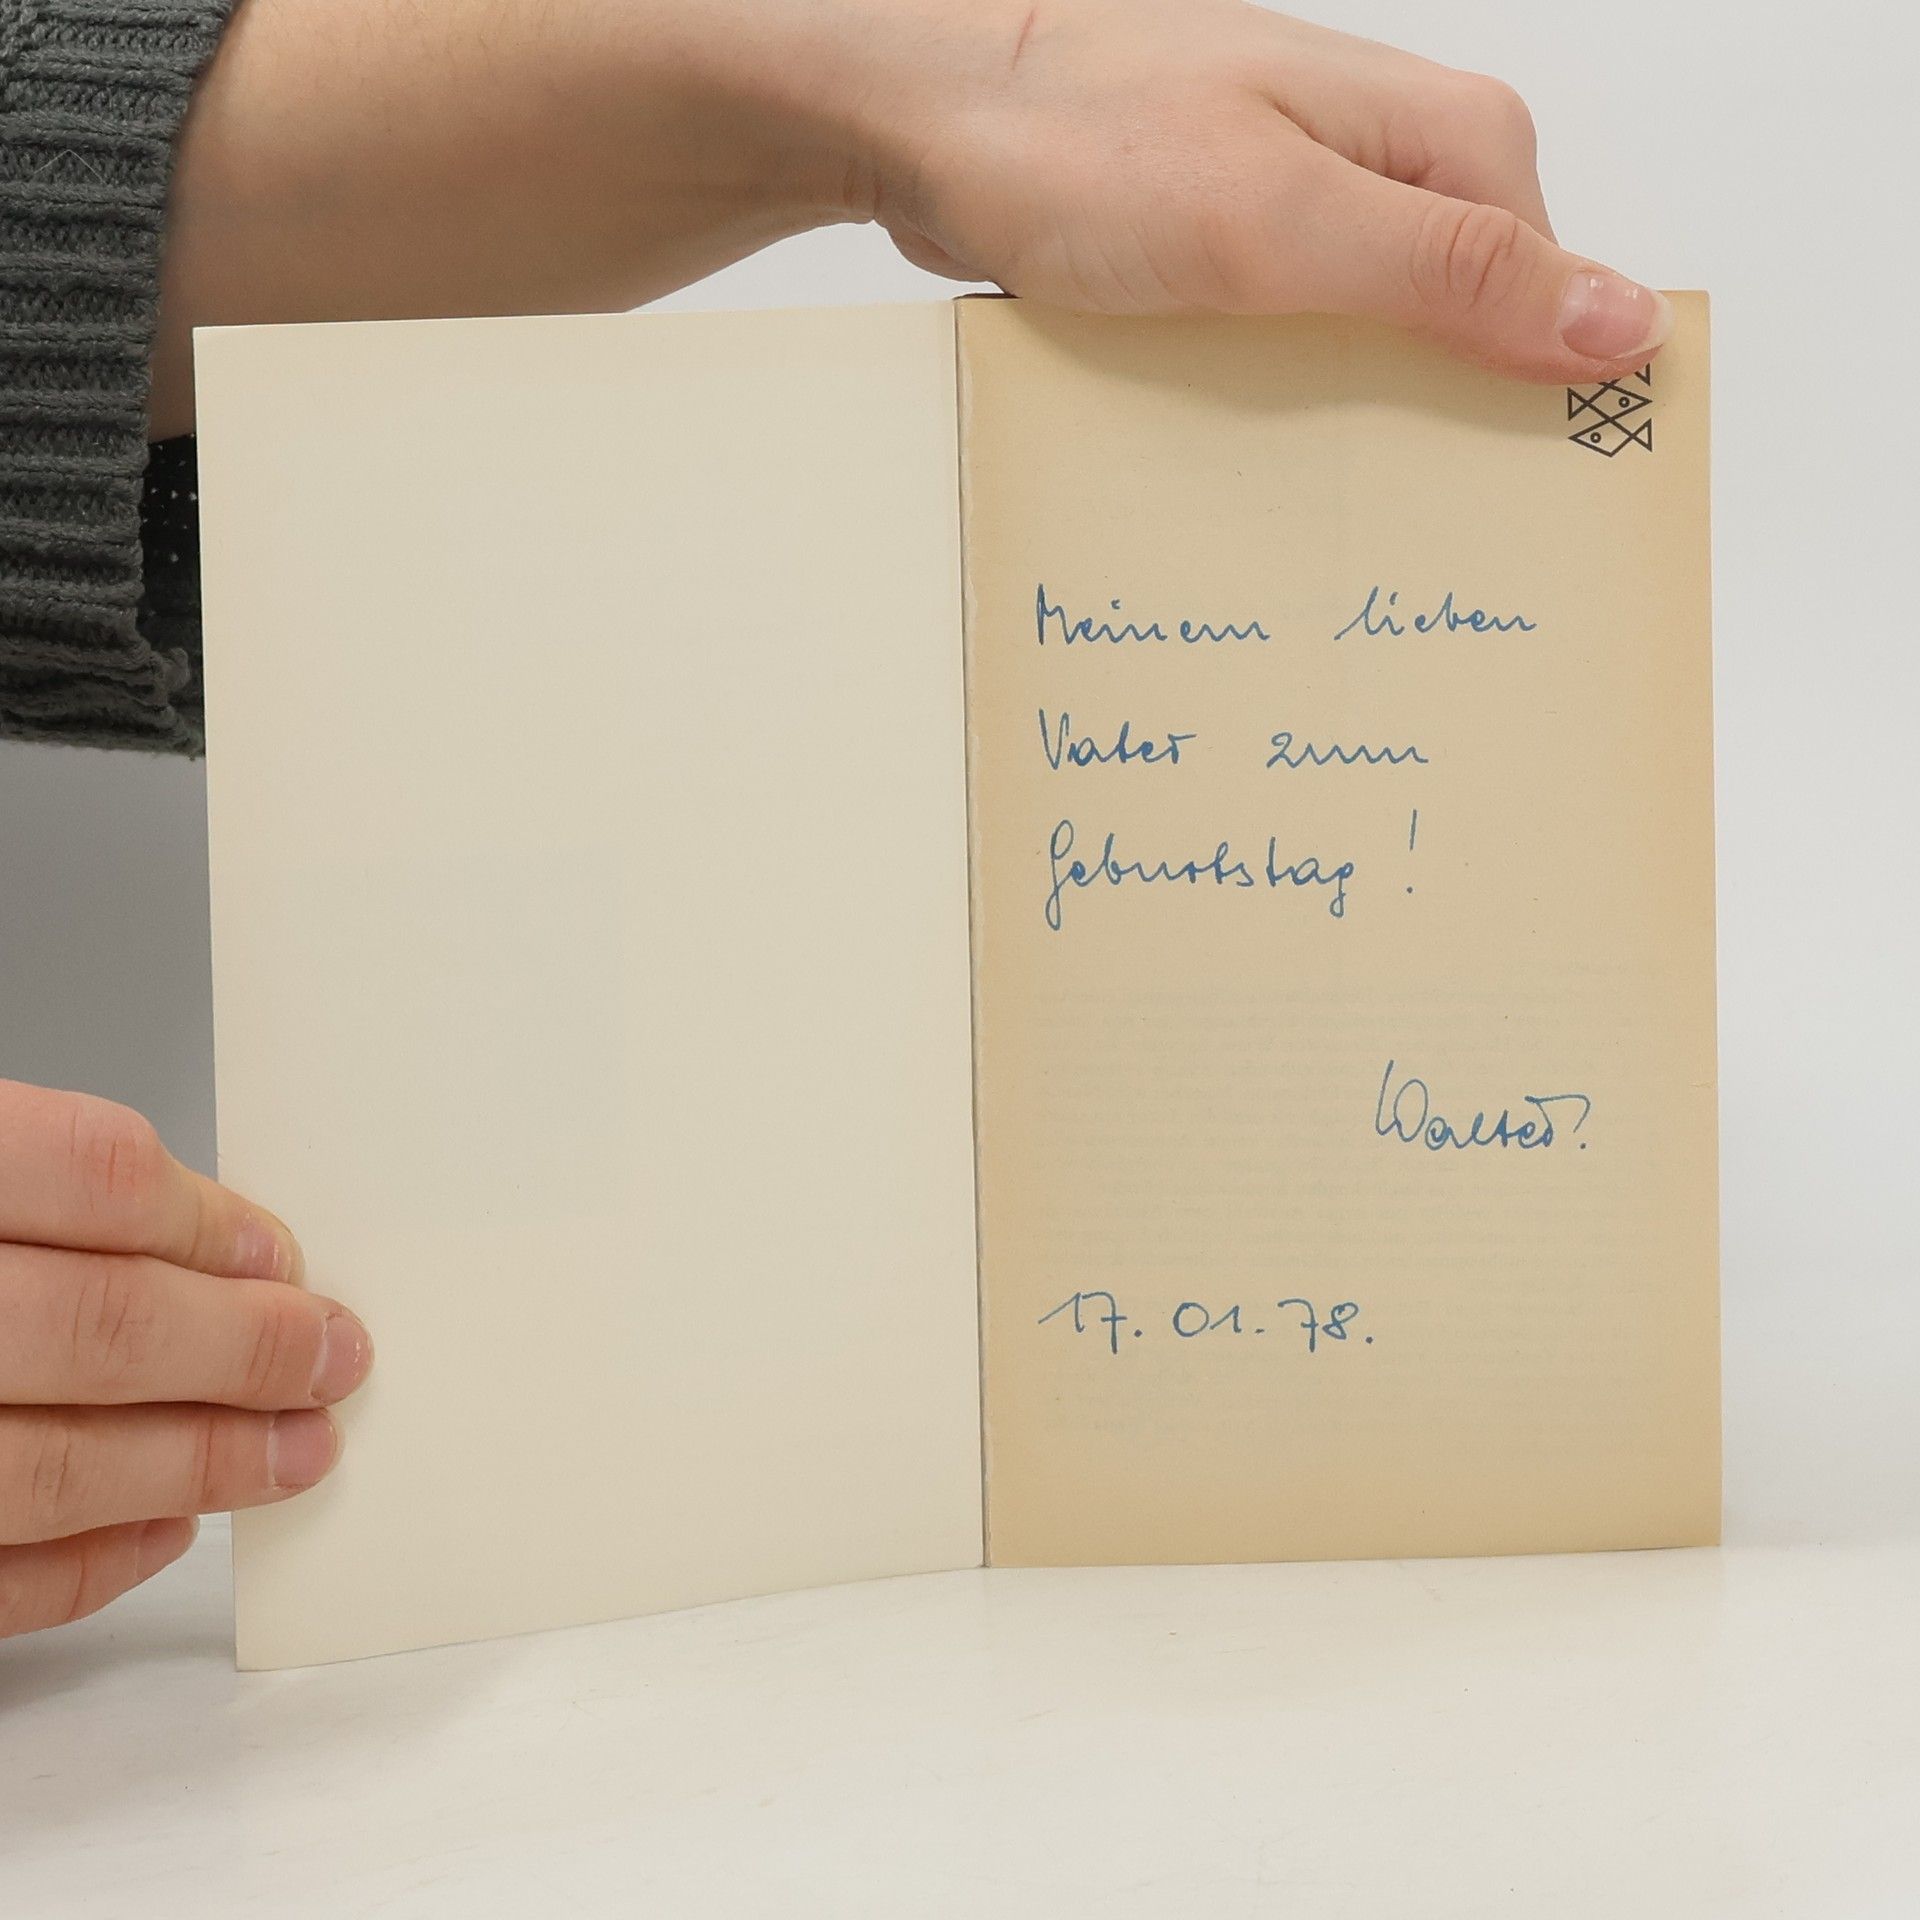 Meinem lieben
Vater zum
Geburtstag!
Walter.
17.01.78.